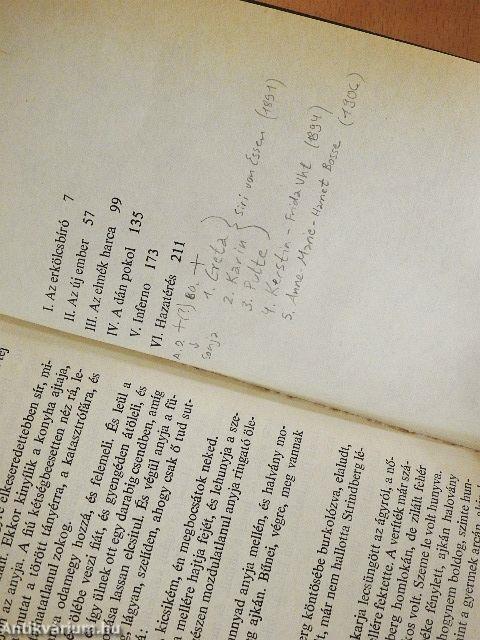 I. Az erkölcsbíró 7
II. Az új ember 57
III. Az elmék harca 99
IV. A dán pokol 135
V. Inferno 173
VI. Hazatérés 211
A.O. + (?) BO. +
↓
Sonja
1. Greta
2. Karin } Siri von Essen (1891)
3. Putte
4. Kerstin - Frida Uhl (1894)
5. Anne-Marie - Harriet Bosse (1904)
elkeseredettebben sír, mi-
Ekkor kinyílik a konyha ajtaja,
az anyja. A fiú kétségbeesetten néz rá, le-
mutat a törött tányérra, a katasztrófára, és
zokog.
odamegy hozzá, és felemeli. És leül a
ölébe veszi fiát, és gyengéden átöleli, és
ülnek ott egy darabig csendben, amíg
lassan elcsitul. És végül anyja a fü-
lágyan, szelíden, ahogy csak ő tud sut-
kicsikém, én megbocsátok neked.
mellére hajtja fejét, és lehunyja a sze-
mozdulatlanul anyja ringató öle-
anyja mellén, és halvány mo-
ajkán. Bűnei, végre, meg vannak
köntösébe burkolózva, elaludt,
már nem hallotta Strindberg lé-
karja lecsüngött az ágyról, a nő-
fektette. A veríték már szá-
homlokán, de zilált fehér
volt. Szeme le volt hunyva.
fénylett, ajkán halovány
boldog, szinte hun-
a gyermek arcán
Antikvárium.hu